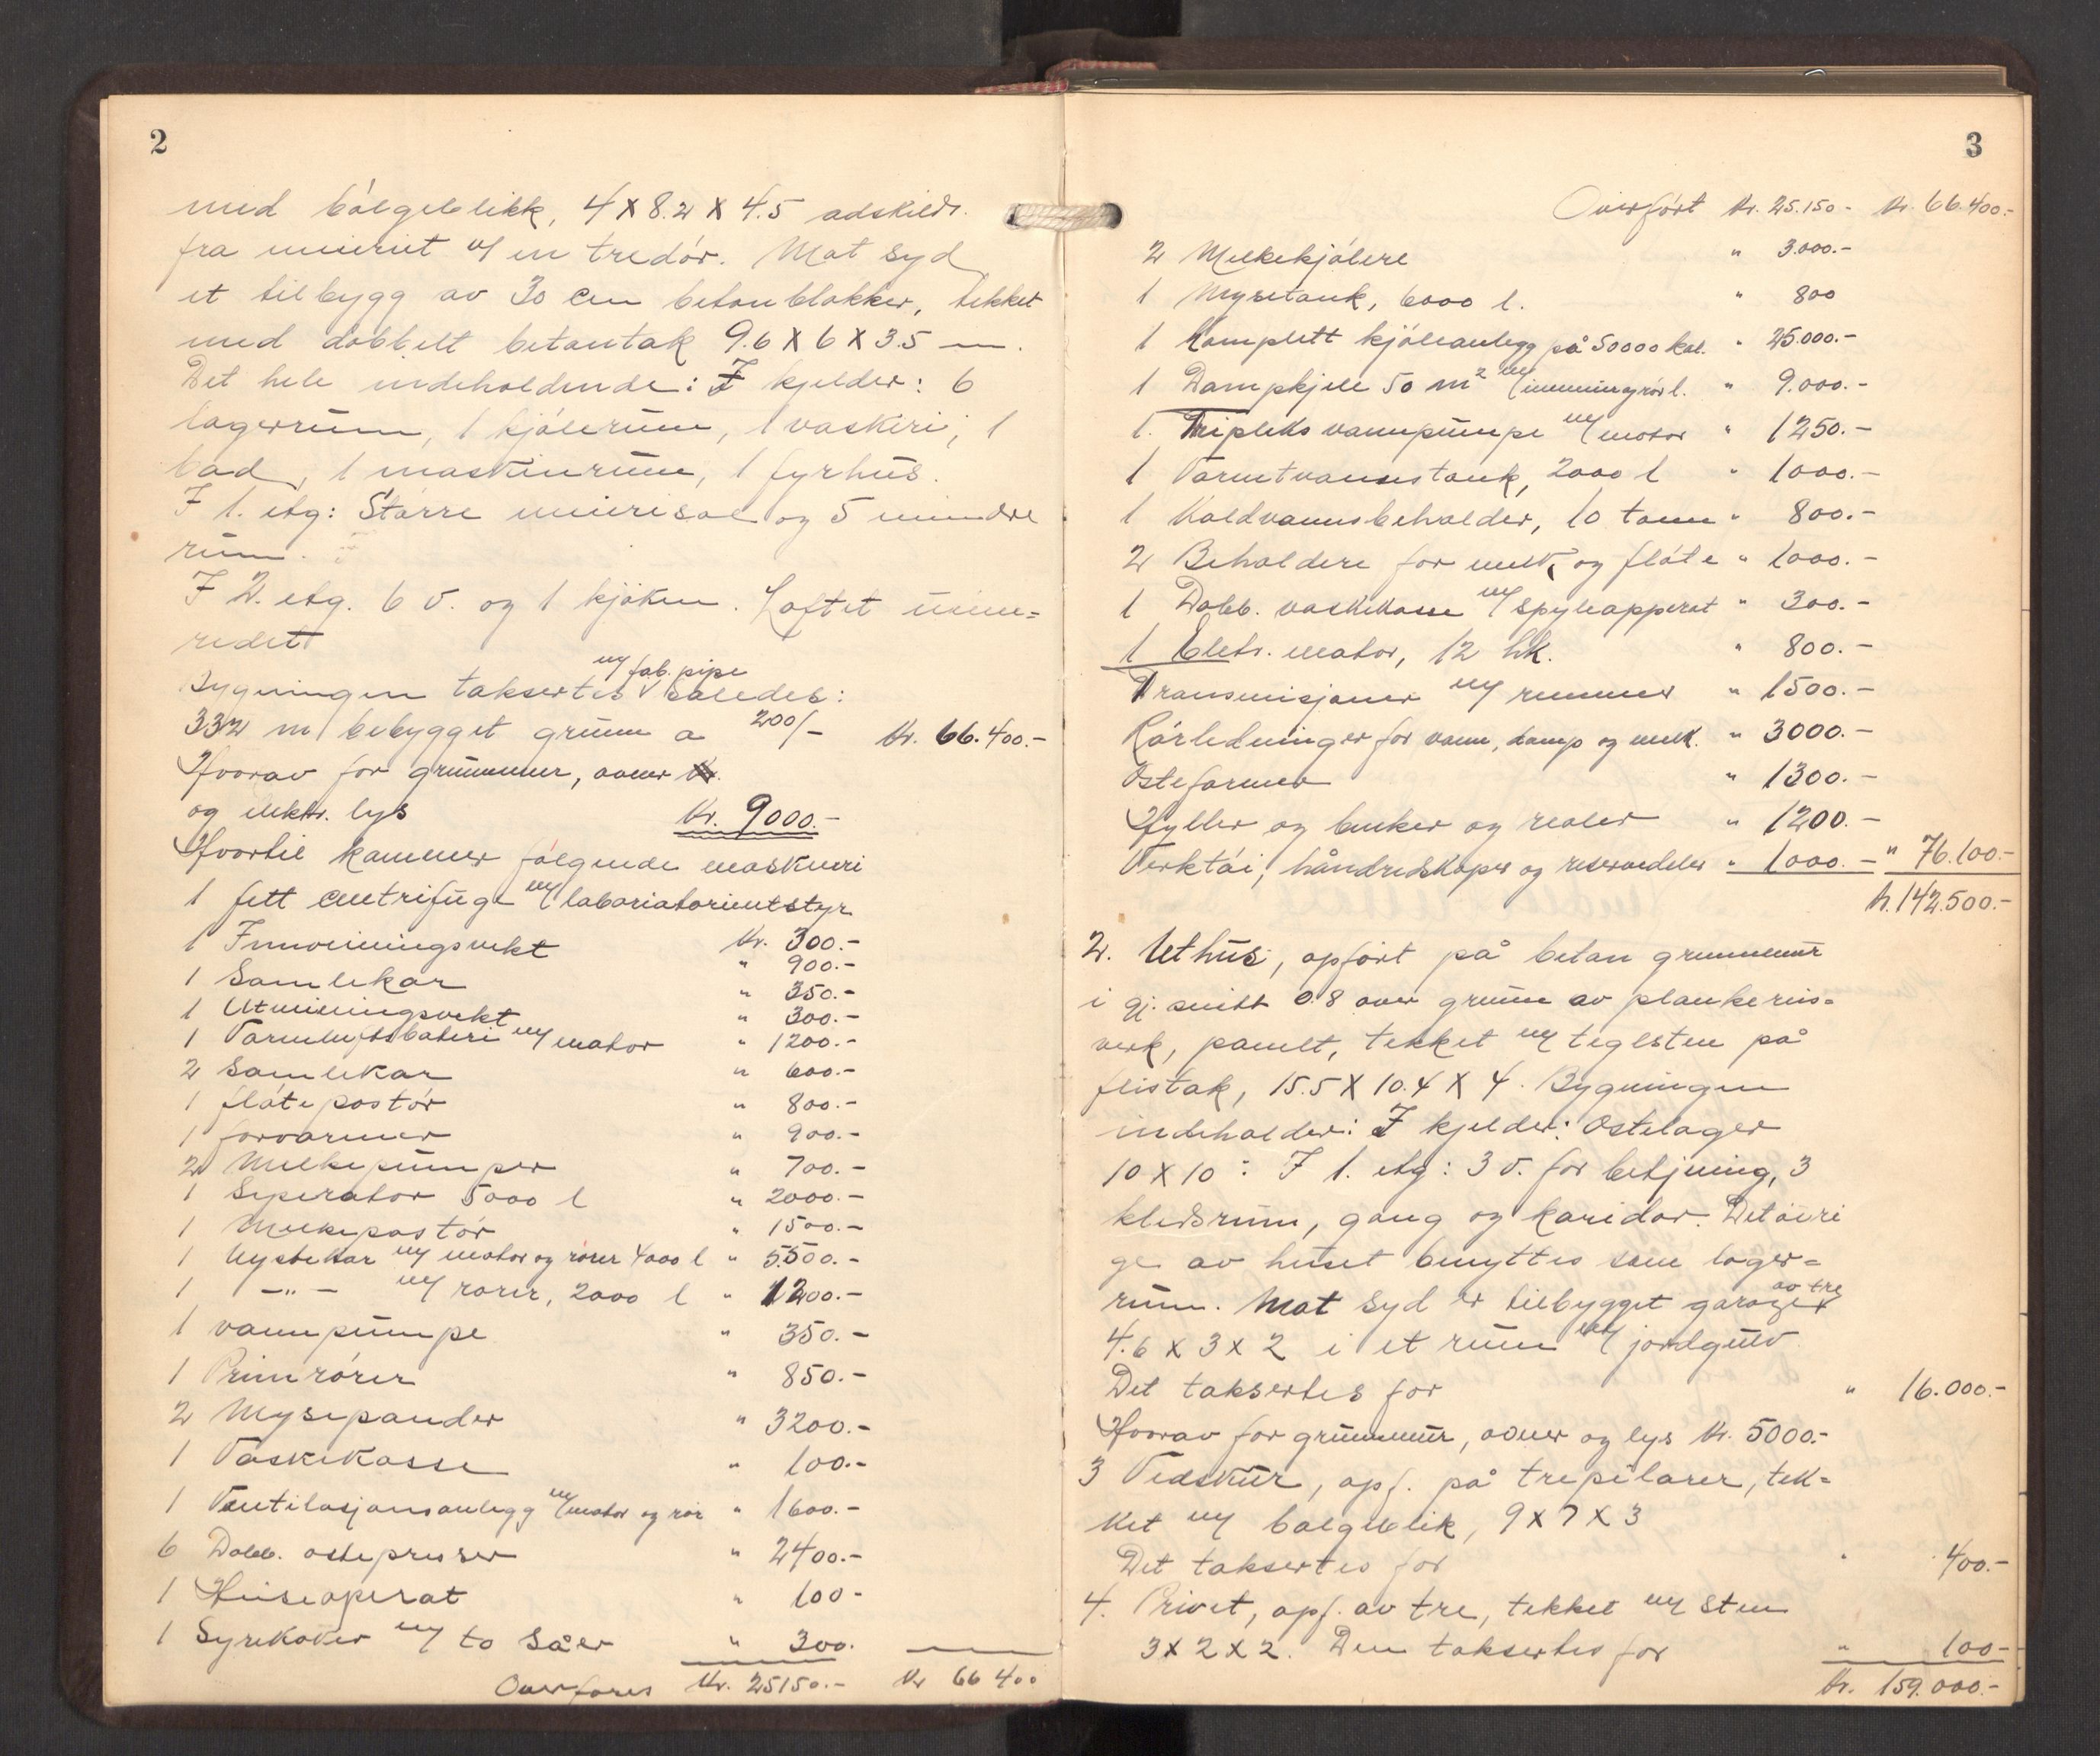 2
med bölgeblikk, 4 X 8.2 X 4.5 adskildt.
fra meieriet m/ en tredör. Mot syd
et tilbygg av 30 cm betonblokker, tekket
med dobbelt betontak 9.6 X 6 X 3.5 m.
Det hele indeholdende: I kjelder: 6
lagerrum, 1 kjölerum, 1 vaskeri, 1
bad, 1 maskinrum, 1 fyrhus.
I 1. etg: Större meierisal og 5 mindre
rum.
I 2. etg. 6 v. og 1 kjöken. Loftet uinn=
redet
m/ fab. pipe
Bygningen taksertes således:
332 m bebygget grunn a 200/- kr. 66.400.-
Hvorav for grunnmur, ovner
og elektr. lys kr. 9000.-
Hvortil kommer fölgende maskineri
1 fett centrifuge m/ laboriatorieutstyr
1 Innveiningsvekt kr. 300.-
" 900.-
1 Samlekar " 350.-
1 Utveiningsvekt " 300.-
1 Varmluftsbateri m/ motor " 1200.-
2 Samlekar " 600.-
1 flötepastör " 800.-
1 forvarmer " 900.-
2 Melkepumper " 700.-
1 Seperator 5000 l " 2000.-
1 Melkepastör " 1500.-
1 Ystekar m/ motor og rörer 4000 l " 5500.-
1 -"- m/ rörer, 2000 l " 1200.-
1 vannpumpe " 350.-
1 Primrörer " 850.-
2 Mysepander " 3200.-
1 Vaskekasse " 100.-
1 Ventilasjonsanlegg m/ motor og rör " 1600.-
6 Dobb. ostepresser " 2400.-
1 Heiseaperat " 100-
1 Syrekoker m/ to såer " 300.
Overföres kr. 25150.- kr 66 400
3
Overfört kr. 25.150- kr. 66.400.-
2 Melkekjölere " 3.000.-
1 Mysetank, 6000 l. " 800
1 Komplett kjöleanlegg på 50000 kal. " 25.000.-
1 Dampkjele 50 m² m/ innmuring rörl. " 9.000.-
1. Tripleks vannpumpe m/ motor " 1250.-
1 Varmtvannstank, 2000 l " 1000.-
1 Koldvannsbeholder, 10 tonn " 800.-
2 Beholdere for melk og flöte " 1000.-
1 Dobb. vaskekasse m/ spyleapperat " 300.-
1 Eletr. motor, 12 hk. " 800.-
Transmisjoner m/ remmer " 1500.-
Rörledninger for vann, damp og melk. " 3000.-
Osteformer " 1300.-
Hyller og benker og reoler " 1200.-
Verktöi, håndredskaper og reservedeler " 1000.- " 76.100.-
kr. 142.500.-
2. Uthus, opfört på beton grunnmur
i gj. snitt 0.8 over grunn av plankereis=
verk, panelt, tekket m/ teglsten på
flistak, 15.5 X 10.4 X 4. Bygningen
indeholder: I kjelder: Ostelager
10 X 10: I 1. etg: 3 v. for betjening, 3
kledsrum, gang og koridor. Det övri
ge av huset benyttes som lager=
rum. Mot syd er tilbygget garage av tre
4.6 x 3 x 2 i et rum m/ jordgulv
Det taksertes for " 16.000.-
Hvorav for grunnmur, ovner og lys kr. 5000.-
3 Vedskur, opf. på trepilarer, tek=
ket m/ bølgeblik, 9 X 7 X 3
Det taksertes for " 400.-
4. Privet, opf. av tre, tekket m/ sten
3 X 2 X 2. Den taksertes for " 100-
kr. 159.000.-